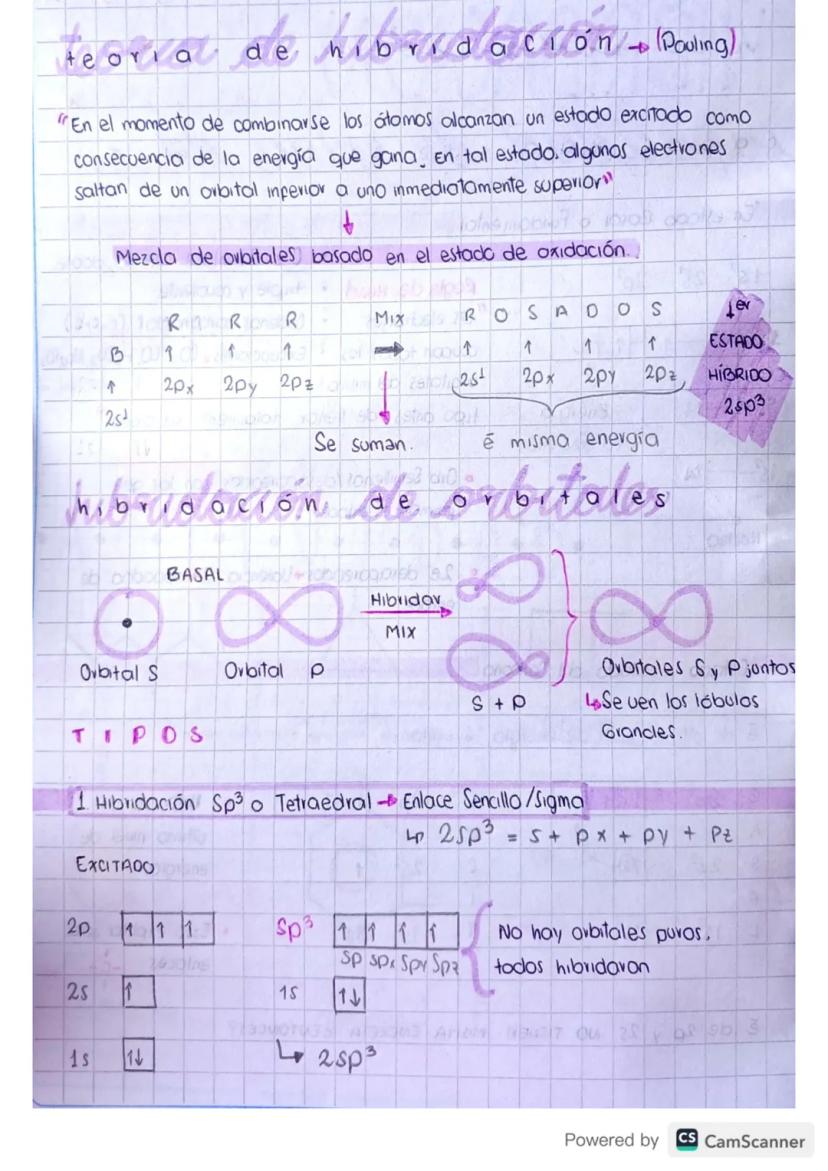 teoría de hibridación → (Pauling)
"En el momento de combinarse los átomos alcanzan un estado excitado como
consecuencia de la energía que gana. En tal estado, algunos electrones
saltan de un orbital inferior a uno inmediatamente superior"
↓
Mezcla de orbitales basado en el estado de oxidación.
R R R Mix R O S A D O S 1er
B ↑ ↑ ↑ → ↑ ↑ ↑ ↑ ESTADO
↑ 2px 2py 2pz 2s¹ 2px 2py 2pz HÍBRIDO
2s¹ 2sp³
Se suman. ē misma energía
hibridación de orbitales
BASAL
Hibridar
MIX
Orbital S Orbital p Orbitales S y P juntos
S + p ↳ Se ven los lóbulos
TIPOS Grandes.
1. Hibridación Sp³ o Tetraedral → Enlace Sencillo/Sigma
↳ 2sp³ = s + px + py + pz
EXCITADO
2p ↑ ↑ ↑ Sp³ ↑ ↑ ↑ ↑ No hay orbitales puros,
Sp Spx Spy Spz todos hibridaron
2s ↑ 1s ↑↓
1s ↑↓ ↳ 2sp³
Powered by CS CamScanner